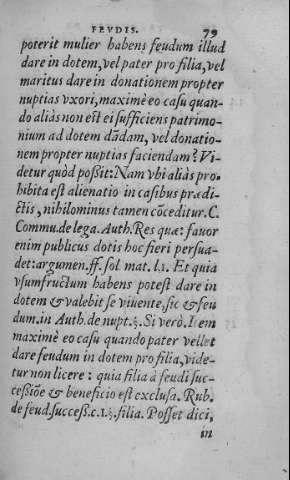 FEVDIS. 79
poterit mulier habens feudum illud
dare in dotem, vel pater pro filia, vel
maritus dare in donationem propter
nuptias vxori, maximè eo casu quan-
do aliàs non est ei sufficiens patrimo-
nium ad dotem dādam, vel donatio-
nem propter nuptias faciendam? Vi-
detur quòd possit: Nam vbi aliàs pro-
hibita est alienatio in casibus prædi-
ctis, nihilominus tamen cōceditur. C.
Commu. de lega. Auth. Res quæ: fauor
enim publicus dotis hoc fieri persua-
det: argumen. ff. sol. mat. l. 1. Et quia
vsumfructum habens potest dare in
dotem & valebit se viuente, sic & feu
dum. in Auth. de nupt. §. Si verò. Item
maximè eo casu quando pater vellet
dare feudum in dotem pro filia, vide-
tur non licere: quia filia à feudi suc-
cessiōe & beneficio est exclusa. Rub.
de feud. success. c. 1. §. filia. Posset dici,
in